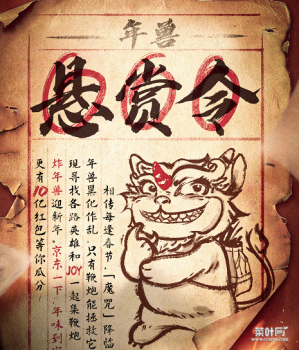 年兽
悬赏令
相传每逢春节，「魔咒」降临
年兽黑化作乱，只有鞭炮能拯救它
现寻找各路英雄和JOY一起集鞭炮
炸年兽迎新年。京东一下，年味到
更有10亿红包等你瓜分！
菜叶网